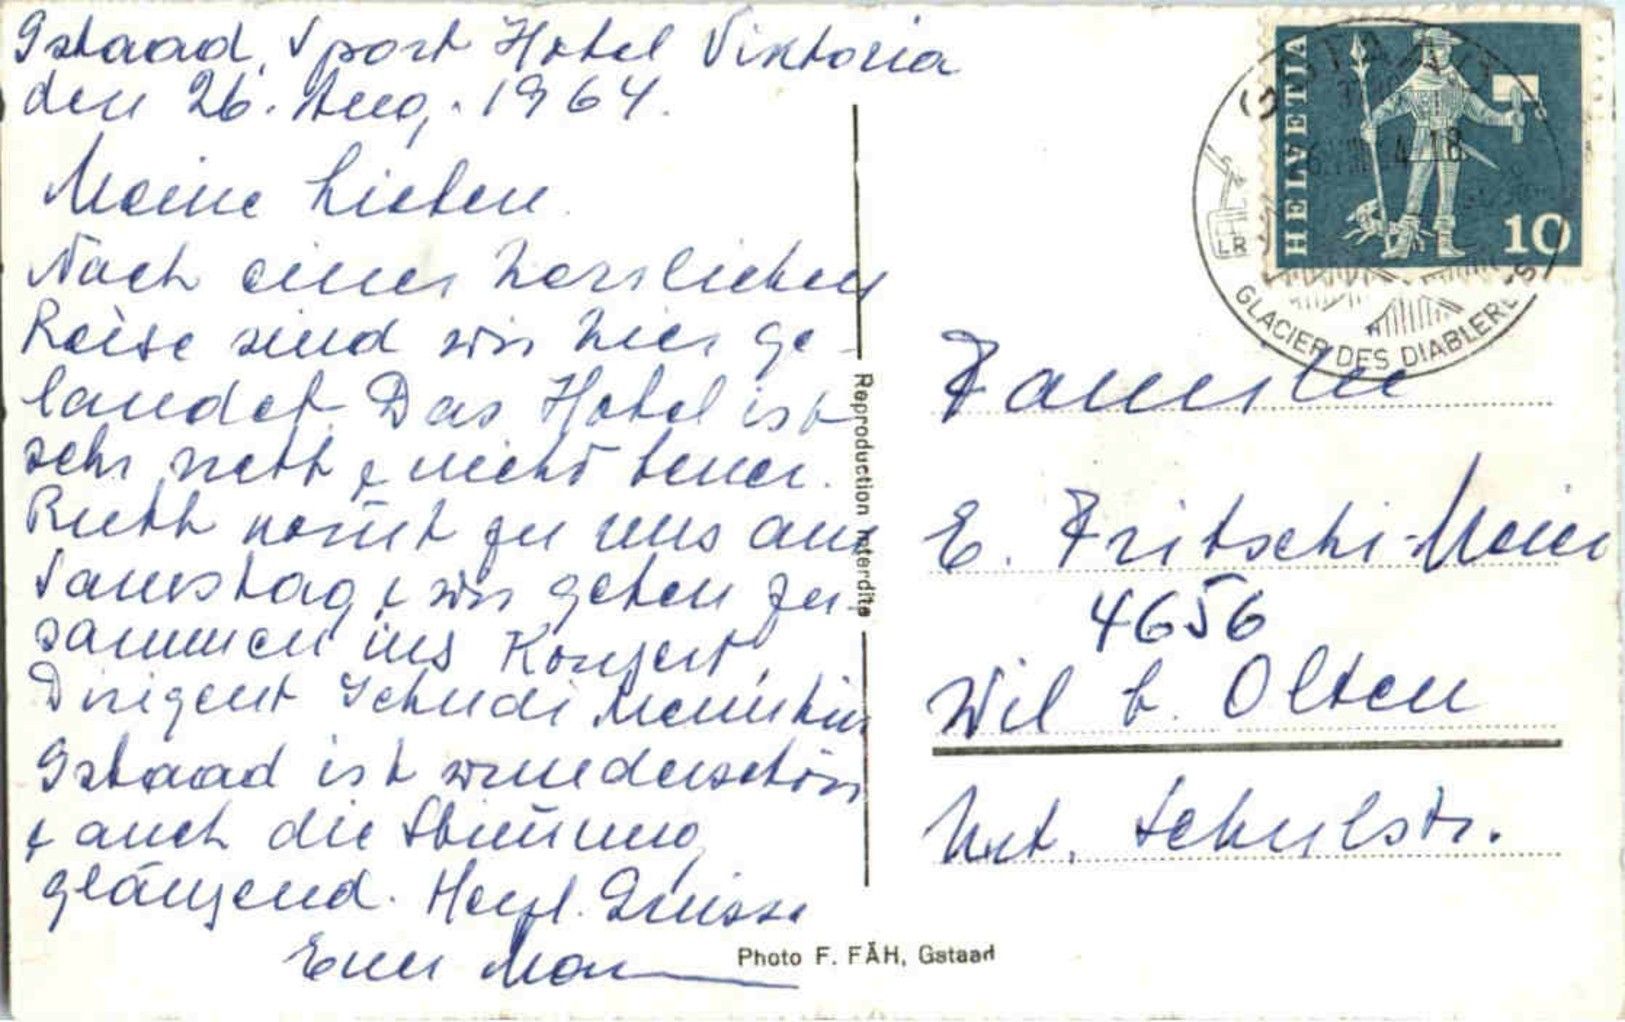 Gstaad, Sport Hotel Viktoria
den 26. Aug. 1964.
Meine Lieben.
Nach einer herrlichen
Reise sind wir hier ge-
landet. Das Hotel ist
sehr nett & nicht teuer.
Ruth kom̄t zu uns am
Samstag & wir gehen zu-
sammen ins Konzert,
Dirigent Jehudi Menuhin
Gstaad ist wunderschön
& auch die Stim̄ung
glänzend. Herzl. Grüsse
Reproduction interdite
Photo F. FÄH, Gstaad
HELVETIA
10
GSTAAD
LR
GLACIER DES DIABLERETS
Familie
E. Fritschi-Meier
4656
Wil b. Olten
Unt. Schulstr.